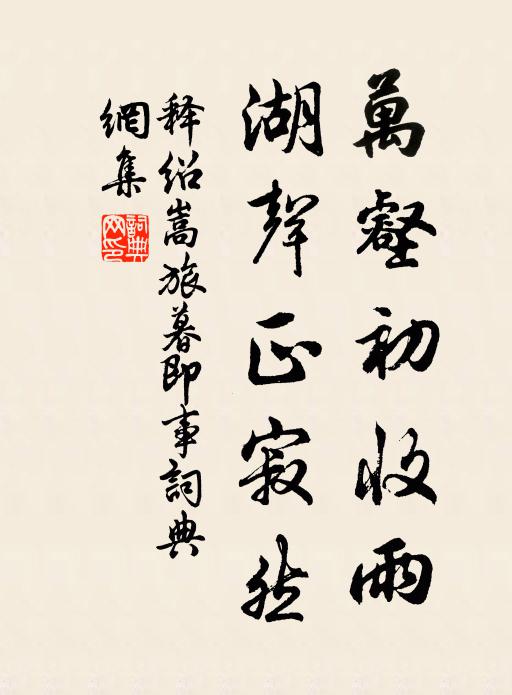 萬壑初收雨
湖聲正寂然
释紹嵩旅暮即事詞典
網集
詞典
网印